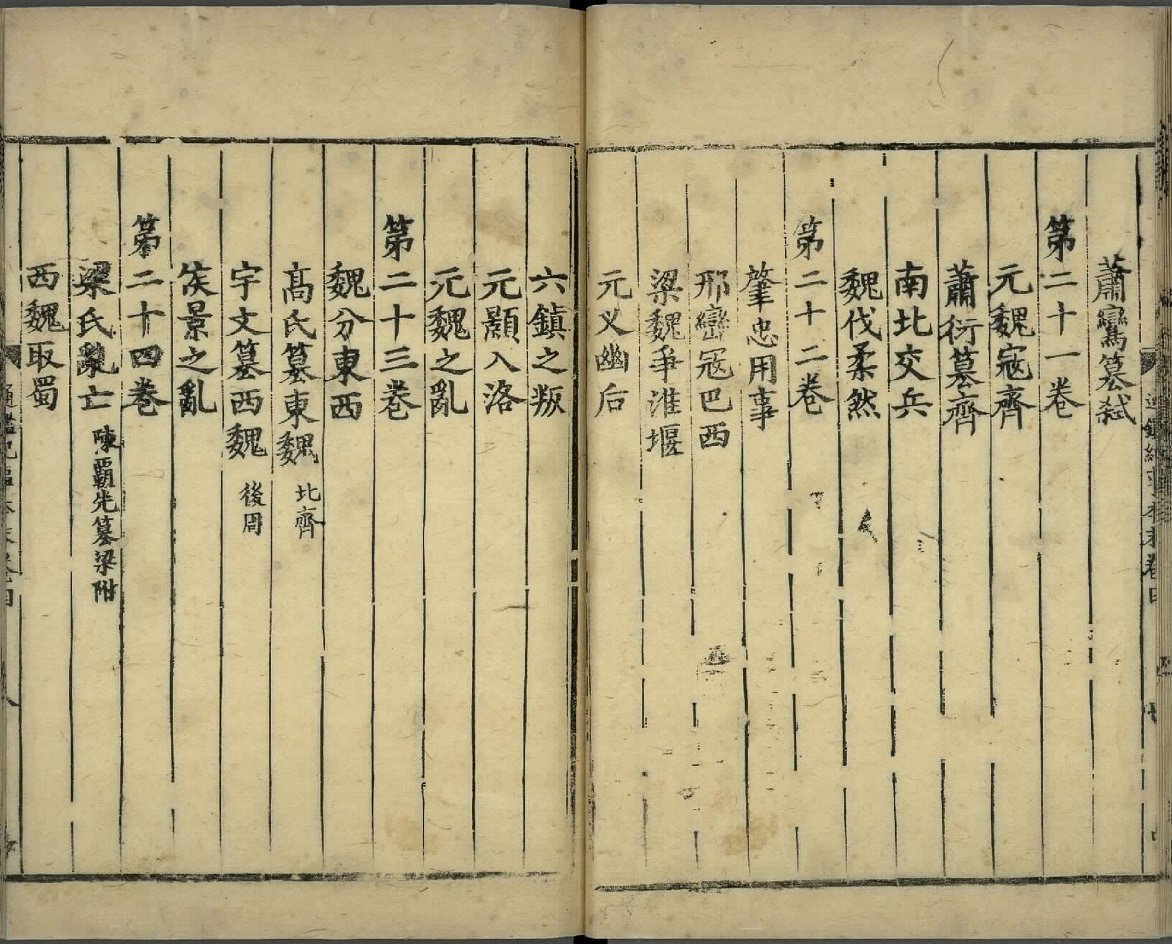 蕭鸞篡弑
第二十一卷
元魏寇齊
蕭衍篡齊
南北交兵
魏伐柔然
第二十二卷
肇忠用事
邢巒寇巴西
梁魏爭淮堰
元义幽后
六鎮之叛
元顥入洛
元魏之亂
第二十三卷
魏分東西
高氏篡東魏 北齊
宇文篡西魏 後周
侯景之亂
第二十四卷
梁氏亂亡 陳覇先篡梁附
西魏取蜀